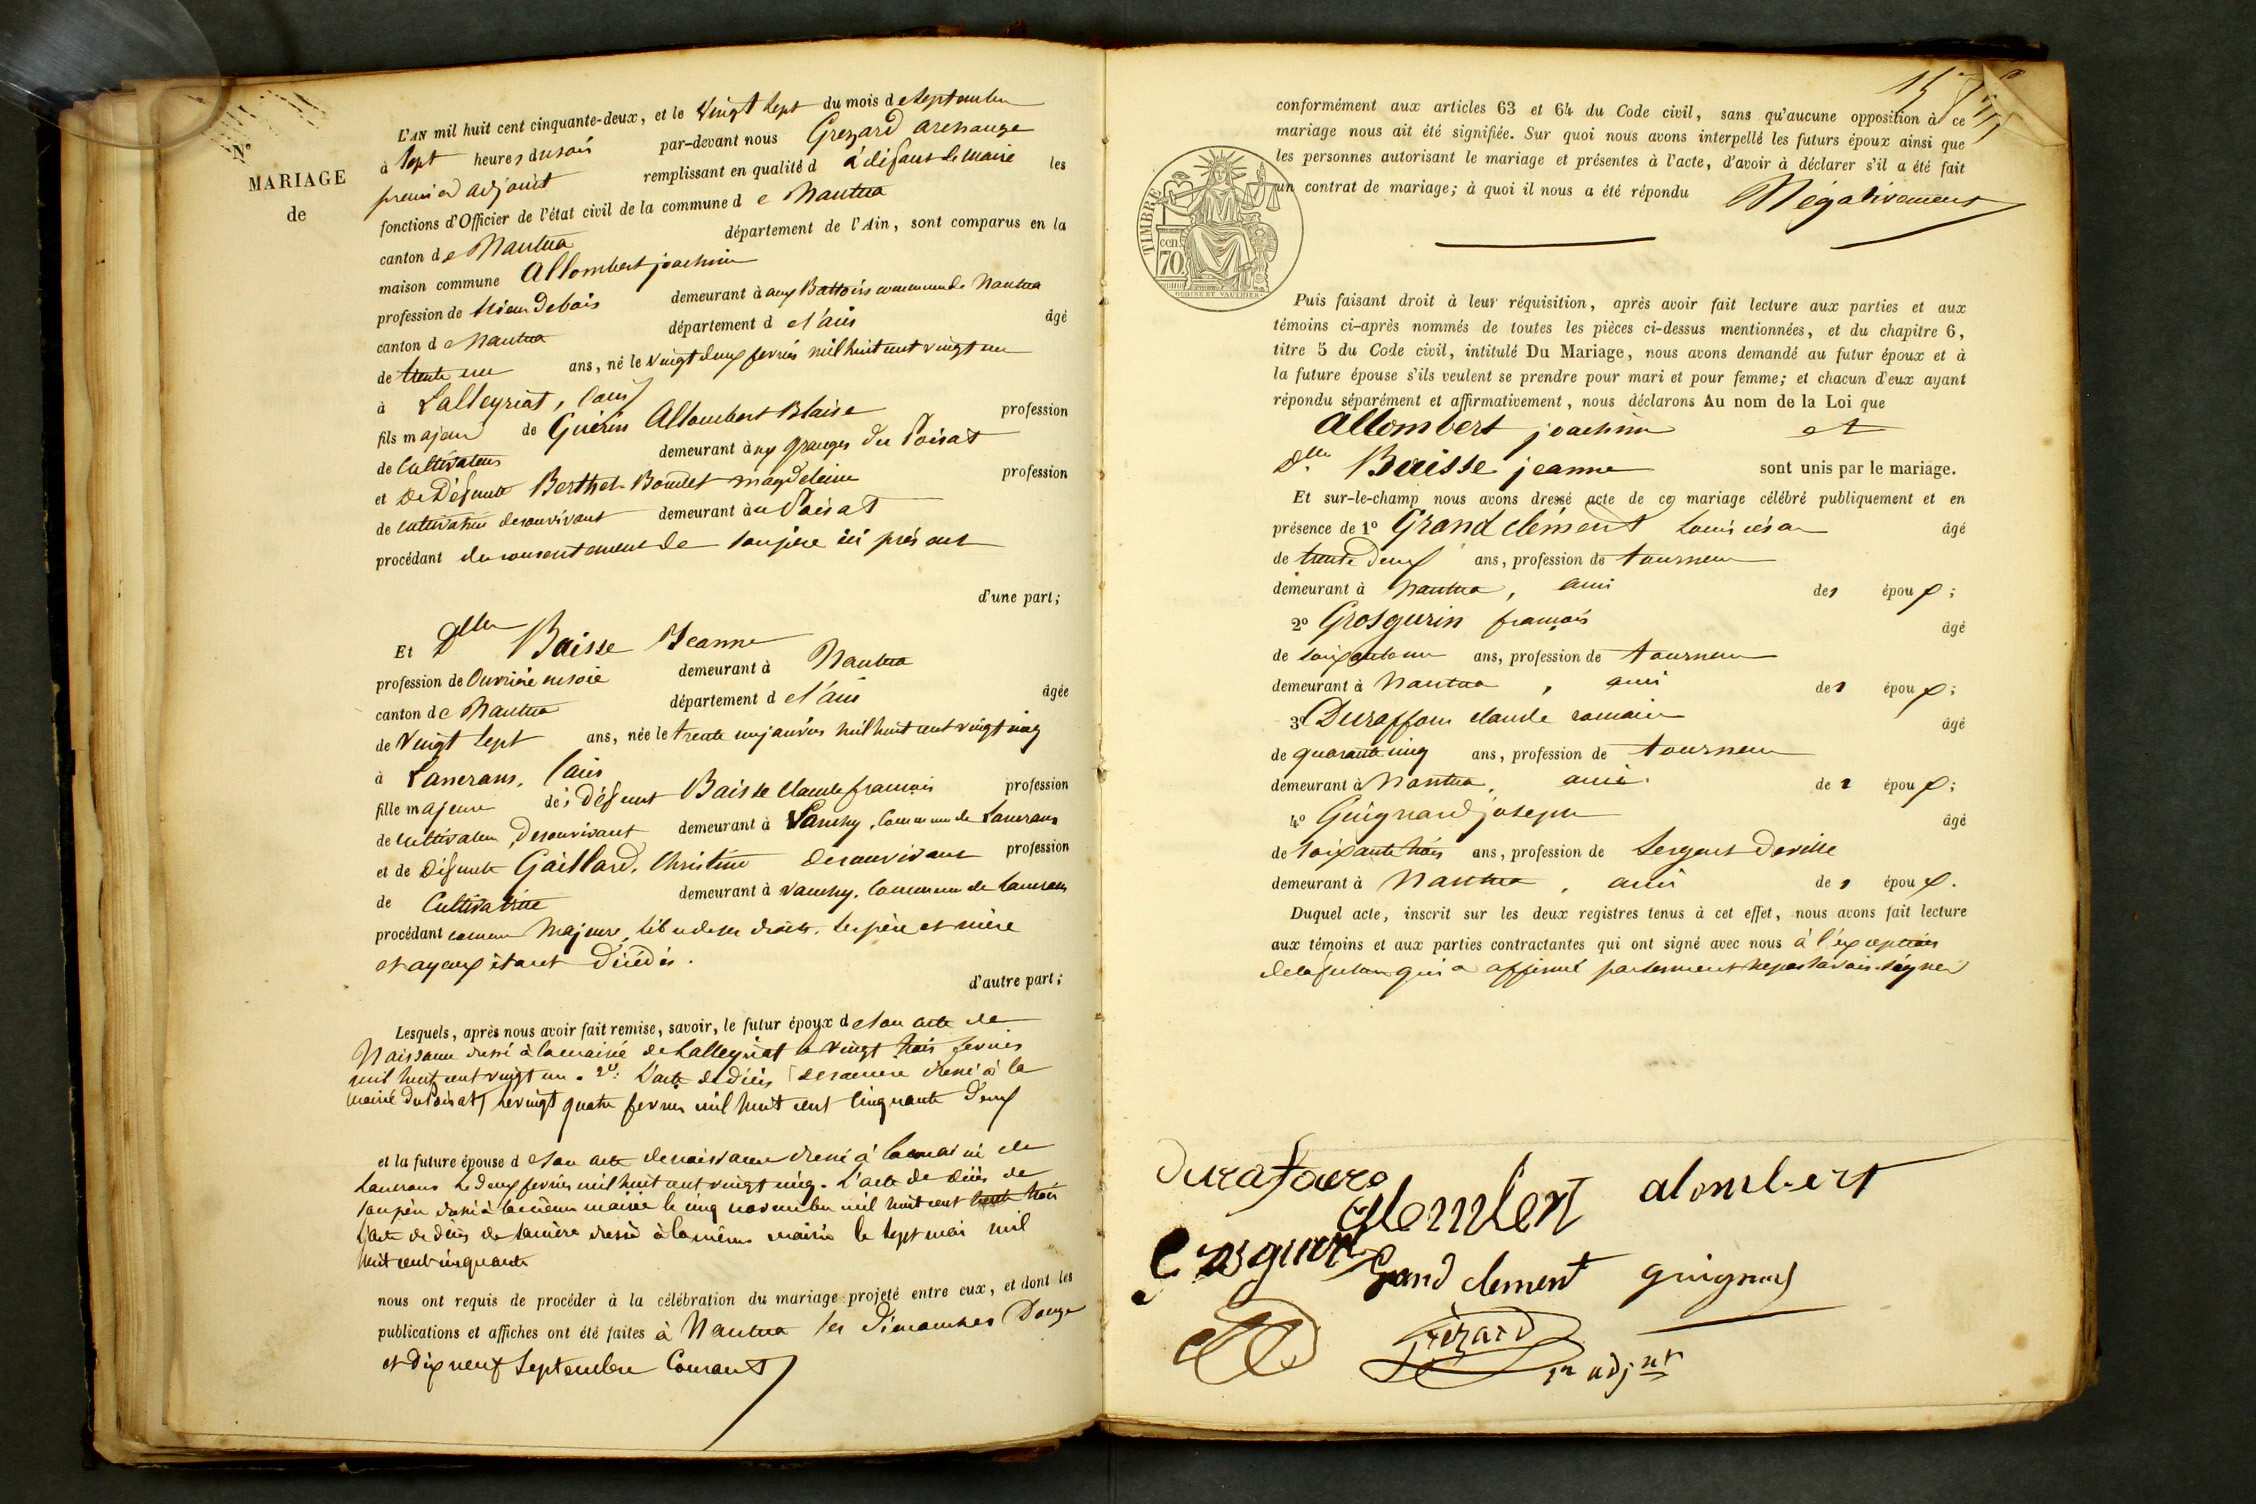 N°
MARIAGE
de
L'AN mil huit cent cinquante-deux, et le Vingt Sept du mois de Septembre
à Sept heures du soir par-devant nous Grezard archange
premier adjoint remplissant en qualité d à défaut de maire les
fonctions d'Officier de l'état civil de la commune d e Nantua
canton de Nantua département de l'Ain, sont comparus en la
maison commune Allombert joachim
profession de Scieur de bois demeurant à aux Battoirs commune de Nantua
canton d e Nantua département d e l'ain âgé
de trente un ans, né le vingt deux fevrier mil huit cent vingt un
à Lalleyriat, (ain)
fils majeur de Guérin Allombert Blaise profession
de Cultivateur demeurant à ux granges du Poisat
et de Défunte Berthet-Bondet magdeleine profession
de cultivatrice de son vivant demeurant à u Poisat
procédant du consentement de son père ici présent
d'une part;
Et Dlle Baisse Jeanne
profession de Ouvrière en soie demeurant à Nantua
canton de Nantua département d e l'ain âgée
de Vingt Sept ans, née le trente un janvier mil huit cent vingt cinq
à Lancrans, (ain
fille majeure de s défunt Baisse Claude françois profession
de cultivateur, de son vivant demeurant à Vanchy, Commune de Lancrans
et de Défunte Gaillard, Christine de son vivant profession
de Cultivatrice demeurant à Vanchy, Commune de Lancrans
procédant comme Majeure, libre de ses droits, ses père et mère
et ayeux étant décédés.
d'autre part;
Lesquels, après nous avoir fait remise, savoir, le futur époux d e son acte de
Naissance dressé à la mairie de Lalleyriat le vingt trois fevrier
mil huit cent vingt un. 2°: L'acte de décès de sa mere dressé à la
mairie du Poisat, le vingt quatre fevrier mil huit cent cinquante deux
et la future épouse d e son acte de naissance dressé à la mairie de
Lancrans le deux fevrier mil huit cent vingt cinq. L'acte de décès de
son père dressé à la même mairie le cinq novembre mil huit cent trente trois
L'acte de décès de sa mère dressé à la même mairie le sept mai mil
huit cent cinquante
nous ont requis de procéder à la célébration du mariage projeté entre eux, et dont les
publications et affiches ont été faites à Nantua les dimanches Douze
et dix neuf Septembre Courant
conformément aux articles 63 et 64 du Code civil, sans qu'aucune opposition à ce
mariage nous ait été signifiée. Sur quoi nous avons interpellé les futurs époux ainsi que
les personnes autorisant le mariage et présentes à l'acte, d'avoir à déclarer s'il a été fait
un contrat de mariage; à quoi il nous a été répondu Négativement
TIMBRE
cen.
70
OUDINE ET VAUTHIER
Puis faisant droit à leur réquisition, après avoir fait lecture aux parties et aux
témoins ci-après nommés de toutes les pièces ci-dessus mentionnées, et du chapitre 6,
titre 5 du Code civil, intitulé Du Mariage, nous avons demandé au futur époux et à
la future épouse s'ils veulent se prendre pour mari et pour femme; et chacun d'eux ayant
répondu séparément et affirmativement, nous déclarons Au nom de la Loi que
Allombert joachim et
Dlle Baisse jeanne sont unis par le mariage.
Et sur-le-champ nous avons dressé acte de ce mariage célébré publiquement et en
présence de 1° Grand clément Louis césar âgé
de trente deux ans, profession de tourneur
demeurant à Nantua, ami des époux;
2° Grosgurin françois âgé
de soixante un ans, profession de tourneur
demeurant à Nantua, ami des époux;
3° Duraffour claude romain âgé
de quarante cinq ans, profession de tourneur
demeurant à Nantua, ami des époux;
4° Guignard joseph âgé
de soixante trois ans, profession de Sergent de ville
demeurant à Nantua, ami des époux.
Duquel acte, inscrit sur les deux registres tenus à cet effet, nous avons fait lecture
aux témoins et aux parties contractantes qui ont signé avec nous à l'exception
de la future qui a affirmé par serment ne pas savoir signer
durafour
allombert alombert
Grosgurin
Grand clement guignard
Grezard
1er adjnt